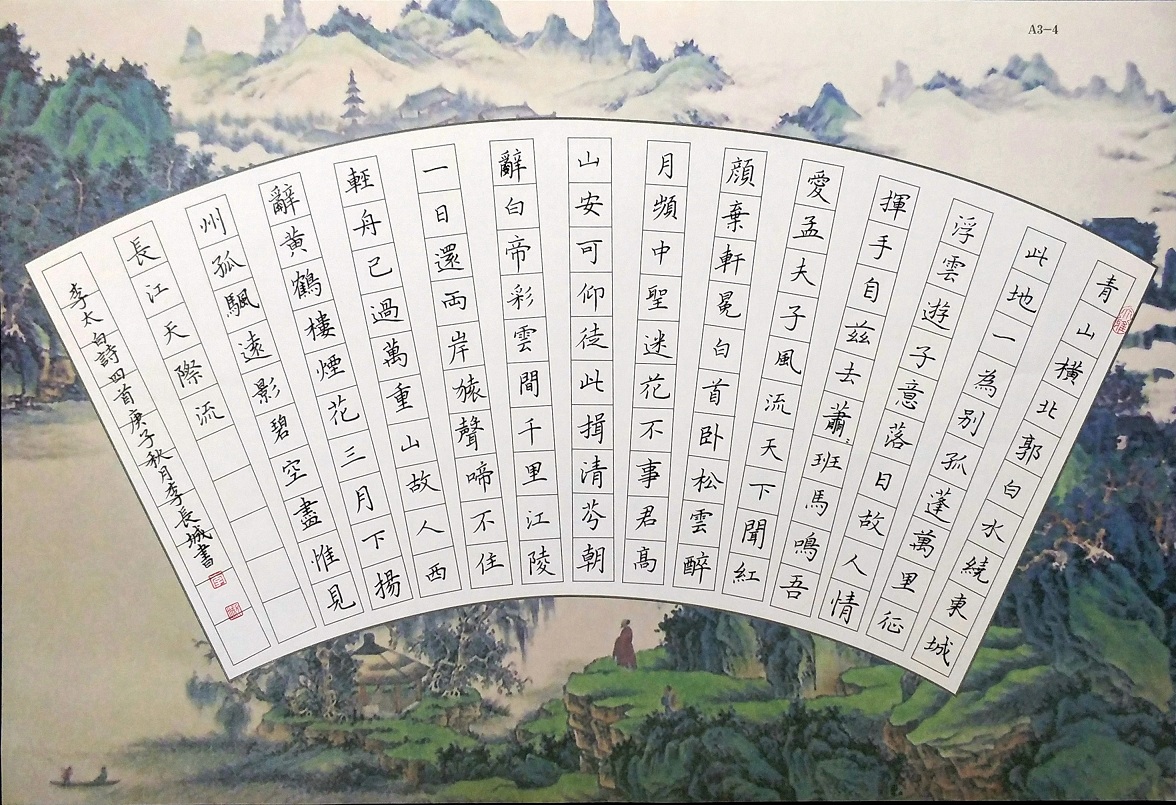 A3-4
青山橫北郭白水繞東城
此地一為別孤蓬萬里征
浮雲遊子意落日故人情
揮手自茲去蕭〻班馬鳴吾
愛孟夫子風流天下聞紅
顔棄軒冕白首卧松雲醉
月頻中聖迷花不事君高
山安可仰徒此揖清芬朝
辭白帝彩雲間千里江陵
一日還兩岸猿聲啼不住
輕舟已過萬重山故人西
辭黃鶴樓煙花三月下揚
州孤颿遠影碧空盡惟見
長江天際流
李太白詩四首庚子秋月李長城書